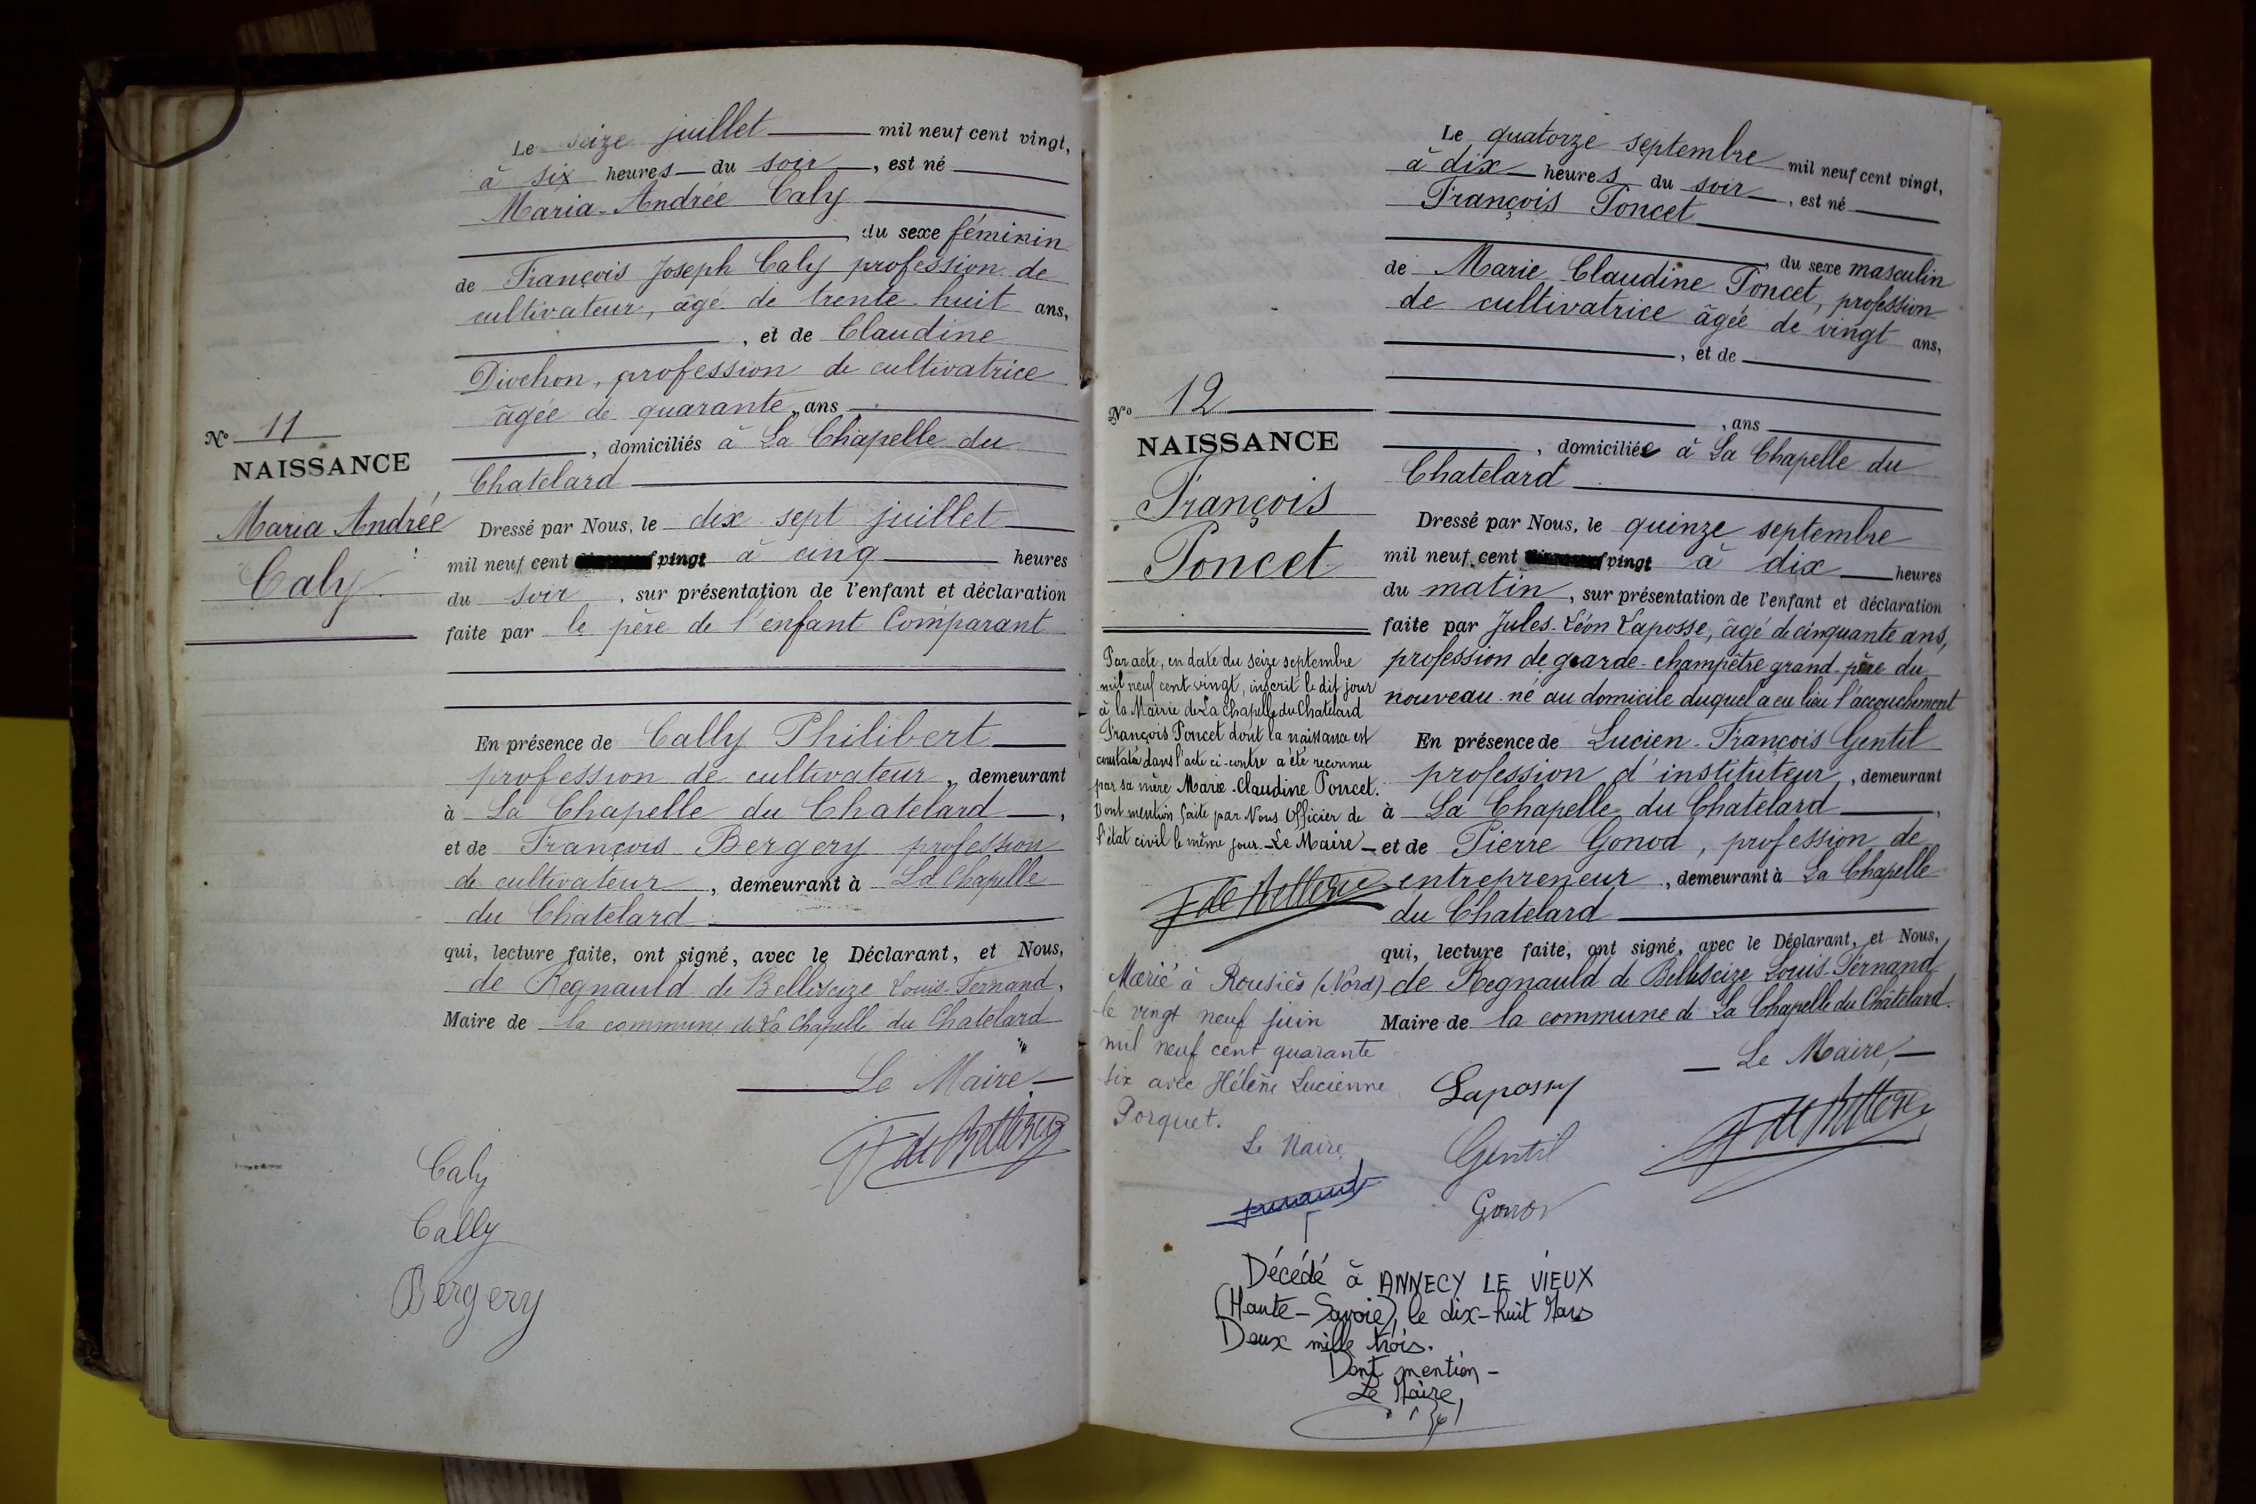 Le seize juillet mil neuf cent vingt,
à six heures du soir, est né
Maria-Andrée Caly
, du sexe féminin
de François Joseph Caly profession de
cultivateur, âgé de trente huit ans,
, et de Claudine
Divchon, profession de cultivatrice
âgée de quarante, ans
, domiciliés à La Chapelle du
Chatelard
No 11
NAISSANCE
Maria Andrée
Caly
Dressé par Nous, le dix sept juillet
mil neuf cent vingt à cinq heures
du soir, sur présentation de l'enfant et déclaration
faite par le père de l'enfant Comparant
En présence de Cally Philibert
profession de cultivateur, demeurant
à La Chapelle du Chatelard,
et de François Bergery profession
de cultivateur, demeurant à La Chapelle
du Chatelard
qui, lecture faite, ont signé, avec le Déclarant, et Nous,
de Regnauld de Bellescize Louis-Fernand,
Maire de la commune de La Chapelle du Chatelard
Le Maire
Caly
Cally
Bergery
Le quatorze septembre mil neuf cent vingt,
à dix heures du soir, est né
François Poncet
, du sexe masculin
de Marie Claudine Poncet, profession
de cultivatrice âgée de vingt ans,
, et de
, ans
, domiciliée à La Chapelle du
Chatelard
No 12
NAISSANCE
François
Poncet
Dressé par Nous, le quinze septembre
mil neuf cent vingt à dix heures
du matin, sur présentation de l'enfant et déclaration
faite par Jules-Léon Laposse, âgé de cinquante ans,
profession de garde-champêtre grand-père du
nouveau-né au domicile duquel a eu lieu l'accouchement
En présence de Lucien-François Gentil
profession d'instituteur, demeurant
à La Chapelle du Chatelard,
et de Pierre Gonod, profession de
entrepreneur, demeurant à La Chapelle
du Chatelard
qui, lecture faite, ont signé, avec le Déclarant, et Nous,
de Regnauld de Bellescize Louis-Fernand
Maire de la commune de La Chapelle du Châtelard.
Le Maire,
Gentil
Par acte, en date du seize septembre
mil neuf cent vingt, inscrit le dit jour
à la Mairie de La Chapelle du Chatelard
François Poncet dont la naissance est
constatée dans l'acte ci-contre a été reconnu
par sa mère Marie-Claudine Poncet.
Dont mention faite par Nous Officier de
l'état civil le même jour. Le Maire
Marié à Rousiès (Nord)
le vingt neuf juin
mil neuf cent quarante
six avec Hélène Lucienne
Porquet.
Le Maire
Décédé à ANNECY LE VIEUX
(Haute-Savoie), le dix-huit Mars
Deux mille trois.
Dont mention -
Le Maire,